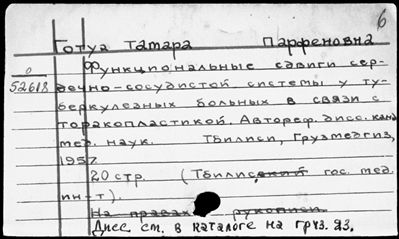 6
Готуа Тамара Парфеновна
0
Функциональные сдвиги сер-
52618
дечно-сосудистой системы у ту-
беркулезных больных в связи с
торакопластикой. Автореф. дисс. канд
мед. наук. Тбилиси, Грузмедгиз,
1957
20 стр. (Тбилисский гос. мед.
ин-т).
На правах рукописи.
Дисс. ст. в каталоге на груз. яз.